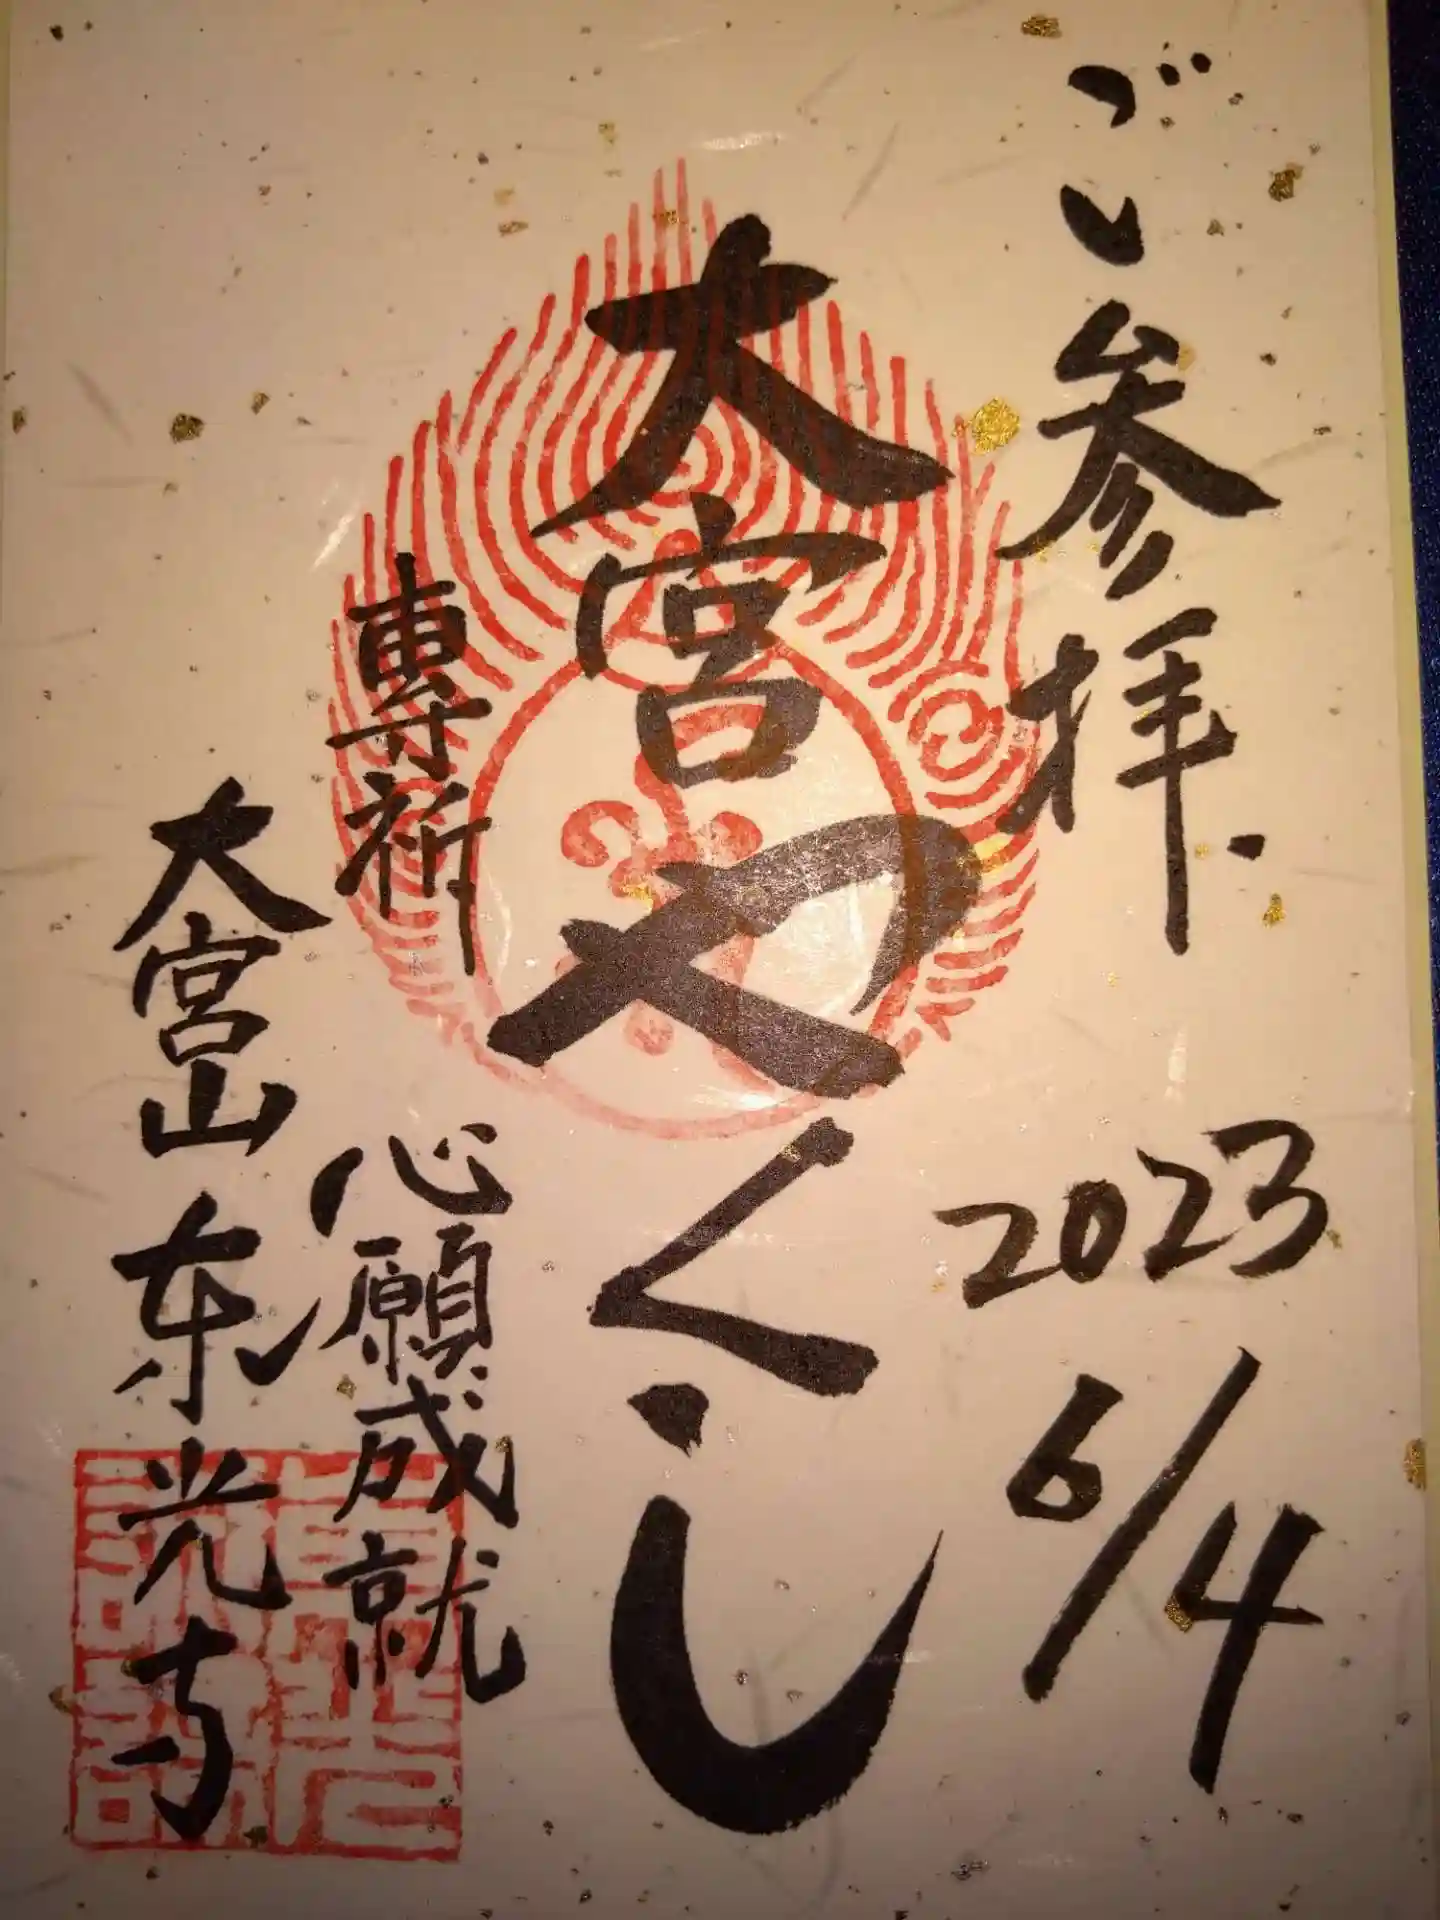 ご参拝
2023
6/4
大宮やくし
専祈
心願成就
大宮山
東光寺